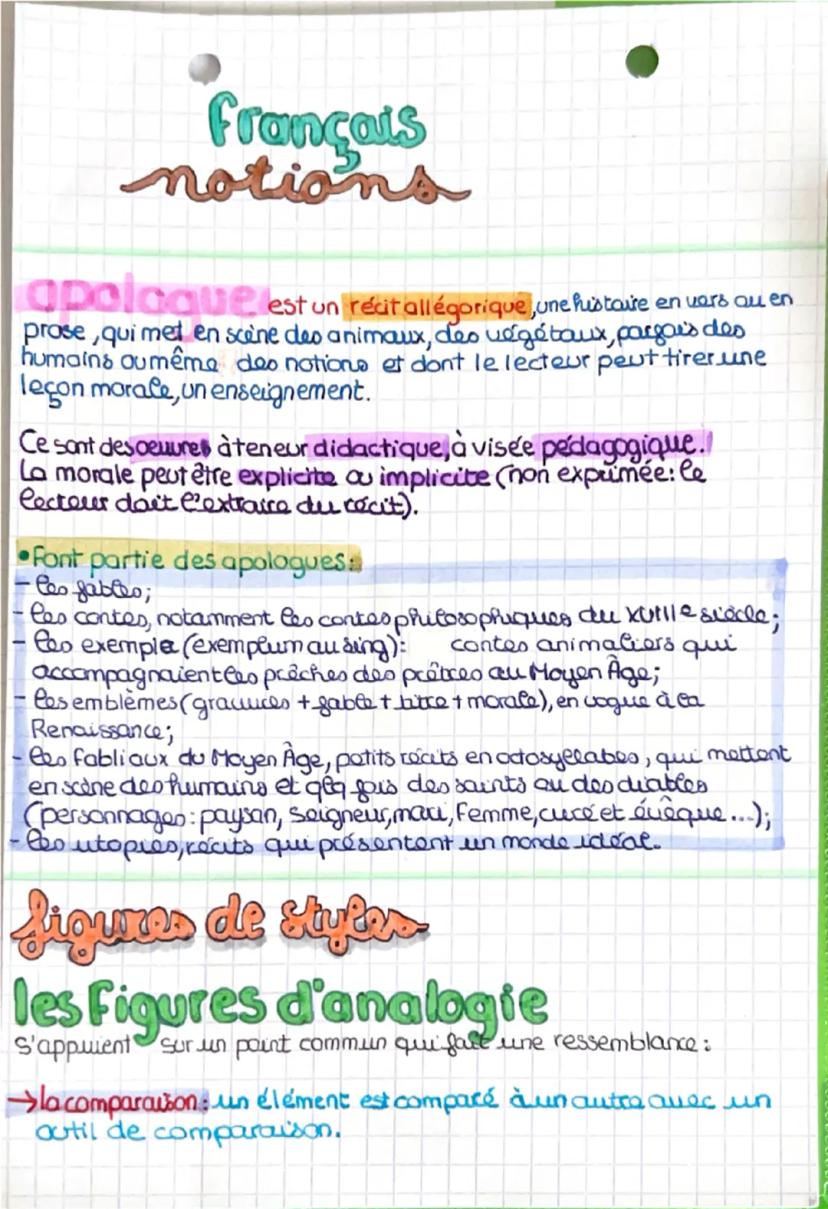 français
notions
apologue est un récit allégorique, une histoire en vers ou en
prose, qui met en scène des animaux, des végétaux, parfois des
humains ou même des notions et dont le lecteur peut tirer une
leçon morale, un enseignement.
Ce sont des oeuvres à teneur didactique, à visée pédagogique.
La morale peut être explicite ou implicite (non exprimée: le
lecteur doit l'extraire du récit).
• Font partie des apologues:
- les fables;
- les contes, notamment les contes philosophiques du XVIIIe siècle;
- les exempla (exemplum au sing): contes animaliers qui
accompagnaient les prêches des prêtres au Moyen Âge;
- les emblèmes (gravures + fable + titre + morale), en vogue à la
Renaissance;
- les fabliaux du Moyen Âge, petits récits en octosyllabes, qui mettent
en scène des humains et qlq fois des saints ou des diables
(personnages: paysan, seigneur, mari, femme, curé et évêque...);
- les utopies, récits qui présentent un monde idéal.
figures de styles
les figures d'analogie
s'appuient sur un point commun qui fait une ressemblance:
→ la comparaison: un élément est comparé à un autre avec un
outil de comparaison.